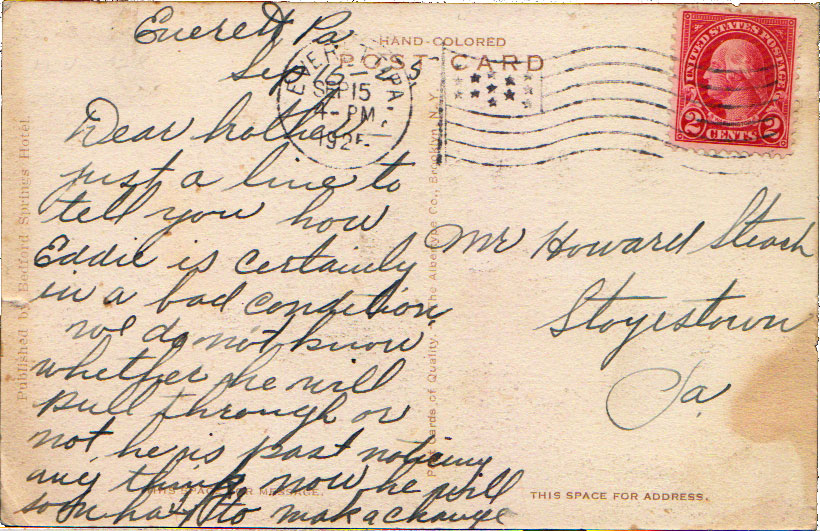 Everett Pa
Sep 15 - 25
HAND-COLORED
POST CARD
EVERETT PA.
SEP 15
4 - PM
192
UNITED STATES POSTAGE
WASHINGTON
2 CENTS 2
Dear brother
just a line to
tell you how
Eddie is certainly
in a bad condition
we do not know
whether he will
pull through or
not, he is past noticing
any think now he will
soon haft to mak a change
Mr Howard
Stoyestown
Pa.
Published by Bedford Springs Hotel.
Post Cards of Quality. The Albertype Co., Brooklyn, N.Y.
THIS SPACE FOR MESSAGE.
THIS SPACE FOR ADDRESS.